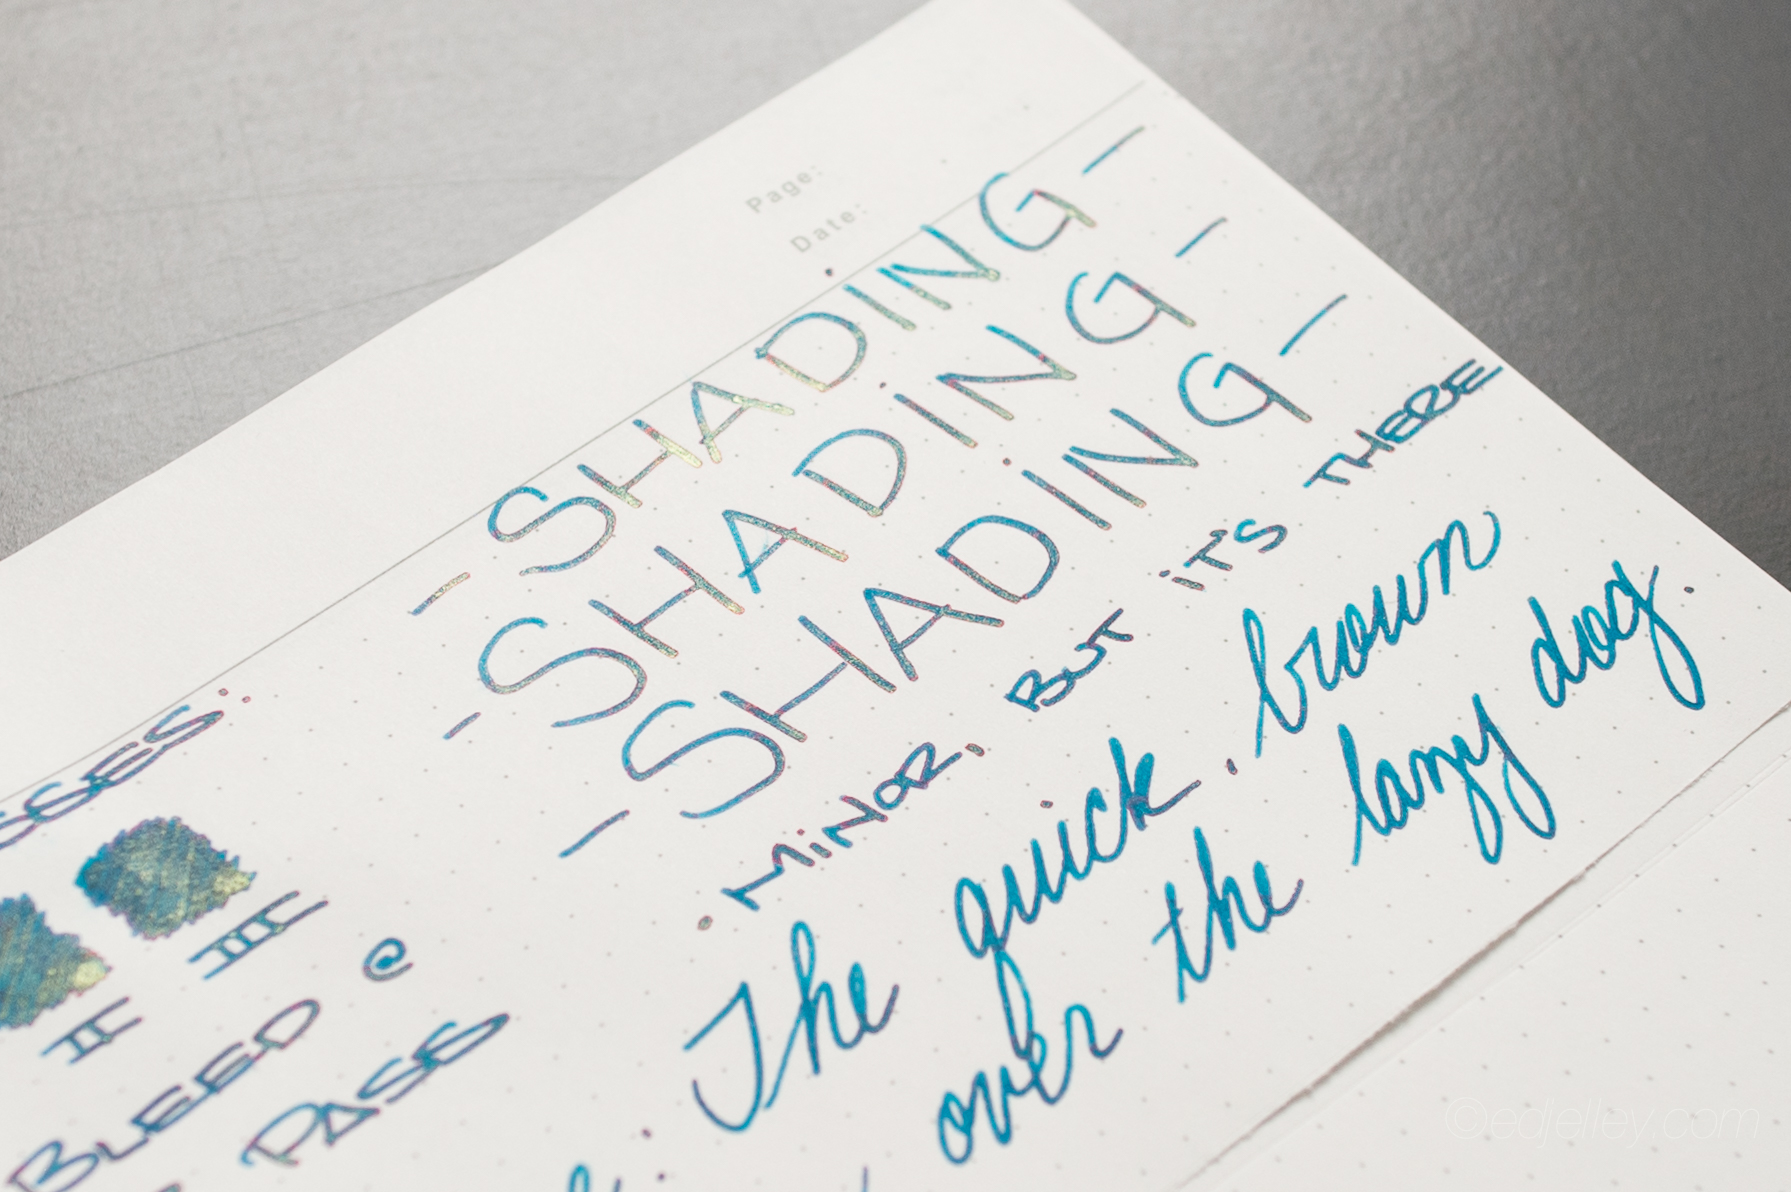 Page:
Date:
- SHADING -
- SHADING -
- SHADING -
• MINOR, BUT IT'S THERE
The quick. brown
over the lazy dog.
III
II
BLEED @
PASS
©edjelley.com